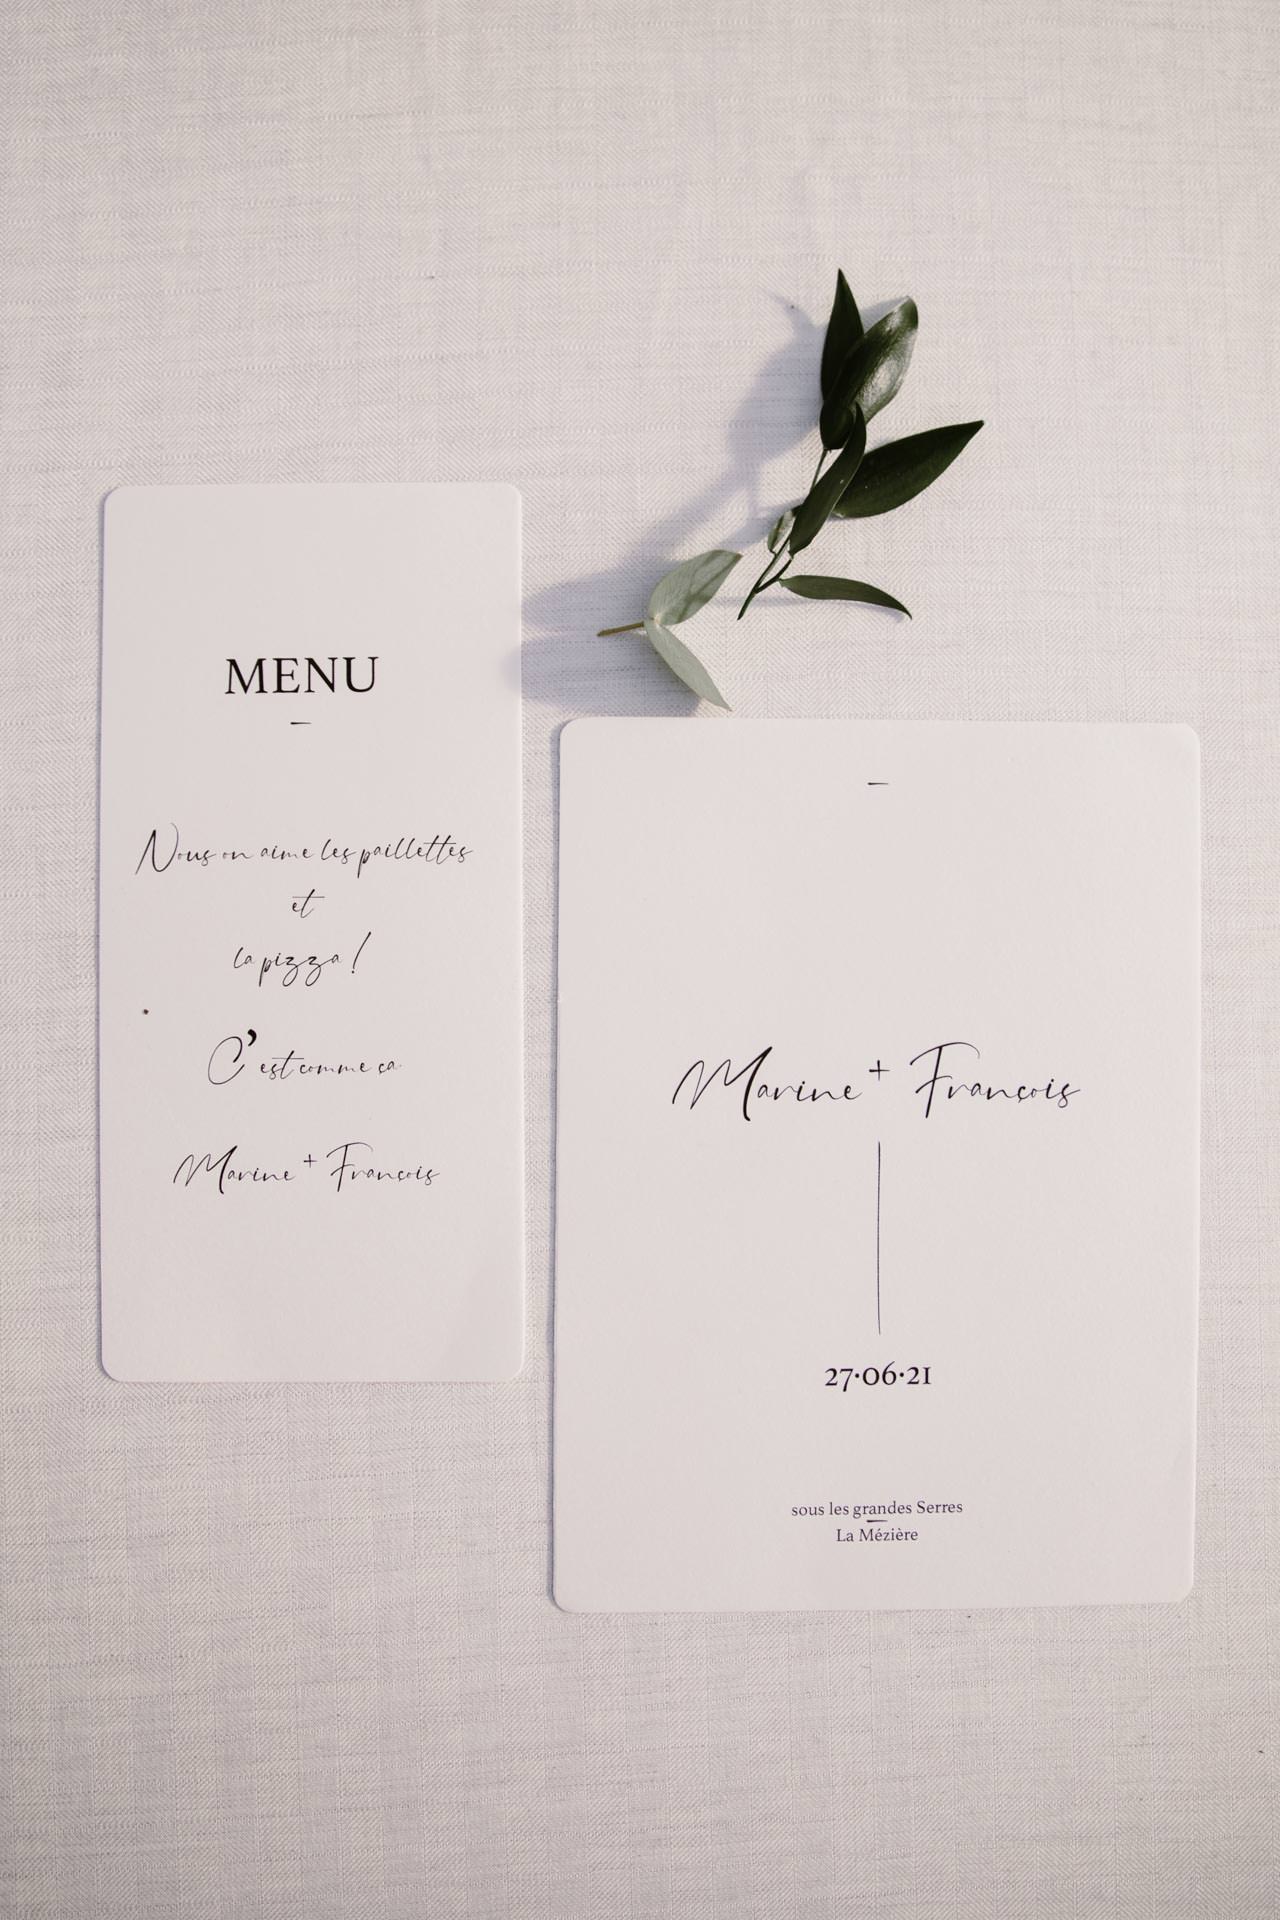 MENU
Nous on aime les paillettes
et
la pizza !
C'est comme ça
Marine + François
Marine + François
27·06·21
sous les grandes Serres
La Mézière